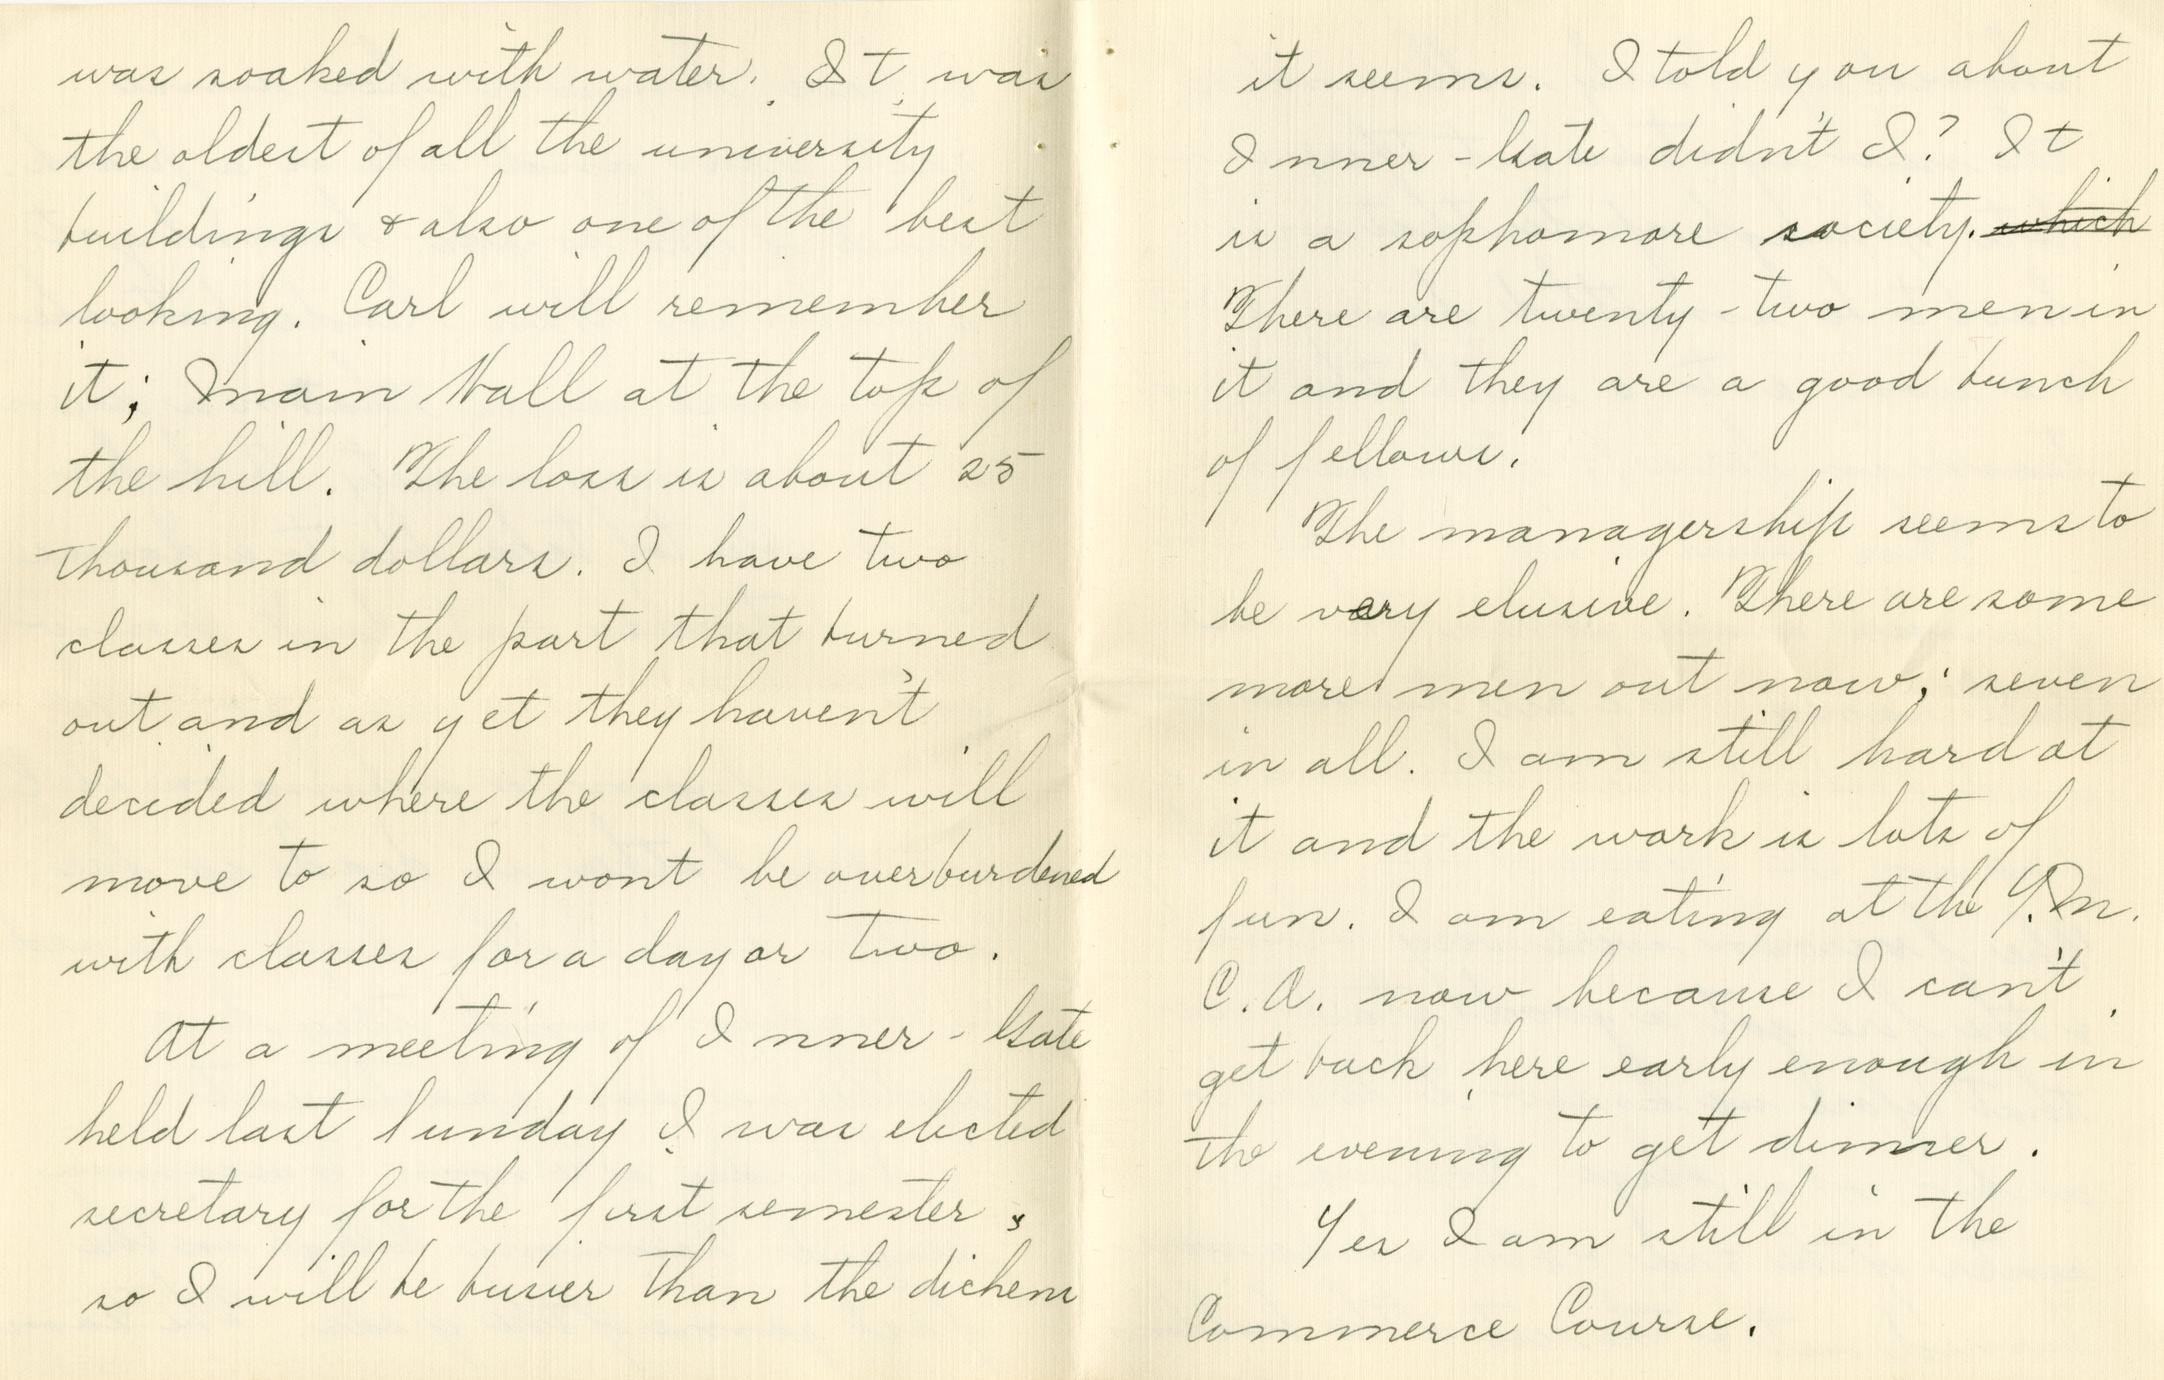 was soaked with water. It was
the oldest of all the university
buildings & also one of the best
looking. Carl will remember
it; Main Hall at the top of
the hill. The loss is about 25
thousand dollars. I have two
classes in the part that burned
out and as yet they haven't
decided where the classes will
move to so I wont be overburdened
with classes for a day or two.
At a meeting of Inner-Gate
held last Sunday I was elected
secretary for the first semester,
so I will be busier than the dickens
it seems. I told you about
Inner-Gate didn't I? It
is a sophomore society. which
There are twenty-two men in
it and they are a good bunch
of fellows.
The managership seems to
be very elusive. There are some
more men out now; seven
in all. I am still hard at
it and the work is lots of
fun. I am eating at the Y.M.
C.A. now because I can't
get back here early enough in
the evening to get dinner.
Yes I am still in the
Commerce Course.